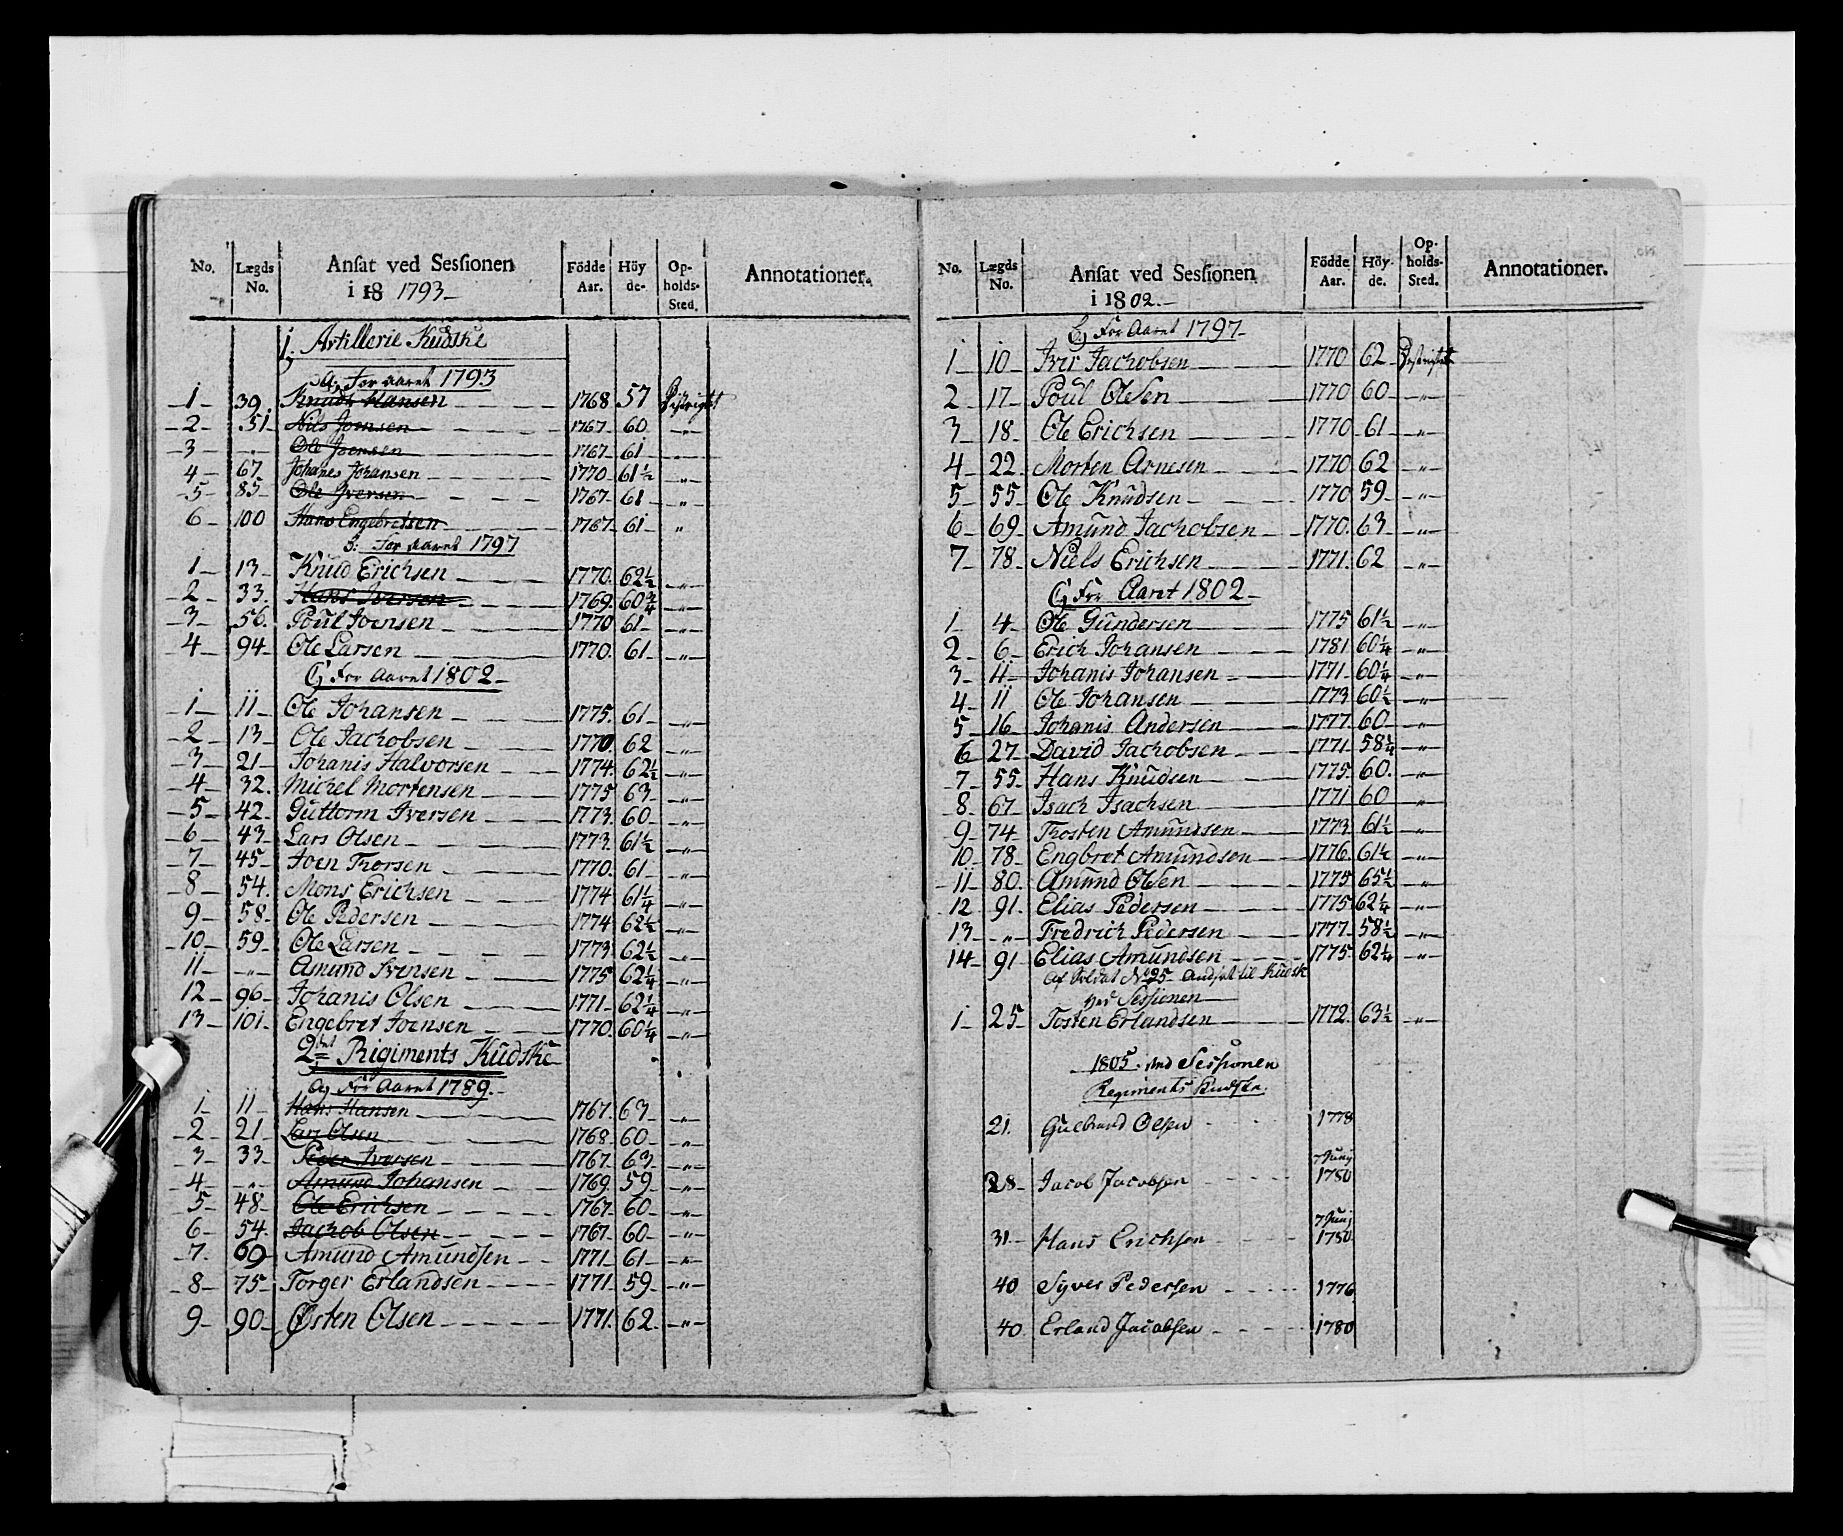 No. Lægds No. Ansat ved Sessionen i 18 1793 Födde Aar. Höyde. Opholds-Sted. Annotationer.
1. Artillerie Kudske
a, For aaret 1793
1 39 Knud Hansen 1768 57 Distrigtet
2 51 Nils Joensen 1767 60 "
3 " Ole Joensen 1767 61 "
4 67 Johanes Johansen 1770 61½ "
5 85 Ole Iversen 1767 61 "
6 100 Hans Engebretsen 1767 61 "
b. For aaret 1797
1 13 Knud Erichsen 1770 62½ "
2 33 Hans Iversen 1769 60¾ "
3 56 Poul Joensen 1770 61 "
4 94 Ole Larsen 1770 61 "
C, For Aaret 1802
1 11 Ole Johansen 1775 61 "
2 13 Ole Jachobsen 1770 62 "
3 21 Johanis Halvorsen 1774 62½ "
4 32 Michel Mortensen 1775 63 "
5 42 Guttorm Iversen 1773 60 "
6 43 Lars Olsen 1773 61½ "
7 45 Joen Thorsen 1770 61 "
8 54 Mons Erichsen 1774 61¼ "
9 58 Ole Pedersen 1774 62½ "
10 59 Ole Larsen 1773 62½ "
11 " Amund Svensen 1775 62¼ "
12 96 Johanis Olsen 1771 62¼ "
13 101 Engebret Joensen 1770 60¼ "
2det Rigiments Kudske
a, For Aaret 1789
1 11 Hans Hansen 1767 63 "
2 21 Lars Olsen 1768 60 "
3 33 Peder Iversen 1767 63 "
4 " Amund Johansen 1769 59 "
5 48 Ole Erichsen 1767 60 "
6 54 Jachob Olsen 1767 60 "
7 69 Amund Amundsen 1771 61 "
8 75 Torger Erlandsen 1771 59 "
9 90 Østen Olsen 1771 62 "
No. Lægds No. Ansat ved Sessionen i 1802 Födde Aar. Höyde. Opholds-Sted. Annotationer.
b, For Aaret 1797
1 10 Iver Jachobsen 1770 62 Distrigtet
2 17 Poul Olsen 1770 60 "
3 18 Ole Erichsen 1770 61 "
4 22 Morten Arnesen 1770 62 "
5 55 Ole Knudsen 1770 59 "
6 69 Amund Jachobsen 1770 63 "
7 78 Niels Erichsen 1771 62 "
C, For Aaret 1802
1 4 Ole Gundersen 1775 61½ "
2 6 Erich Johansen 1781 60¼ "
3 11 Johanis Johansen 1771 60¼ "
4 11 Ole Johansen 1773 60½ "
5 16 Johanis Andersen 1777 60 "
6 27 David Jachobsen 1771 58¼ "
7 55 Hans Knudsen 1775 60 "
8 67 Isach Isachsen 1771 60 "
9 74 Thosten Amundsen 1773 61½ "
10 78 Engbret Amundsen 1776 61½ "
11 80 Amund Olsen 1775 65½ "
12 91 Elias Pedersen 1775 62¼ "
13 " Fredrich Pedersen 1777 58½ "
14 91 Elias Amundsen 1775 62¼ "
Af Soldat No 25 Andsat til Kudsk
ved Sessionen
1 25 Tosten Erlandsen 1772 63½ "
1805 ved Sessionen
Regiments Kudske
21 Gulbrand Olsen 1778
28 Jacob Jacobsen 7 Junj 1780
31 Hans Erichsen 7 Junj 1780
40 Syver Pedersen 1776
40 Erland Jacobsen 1780